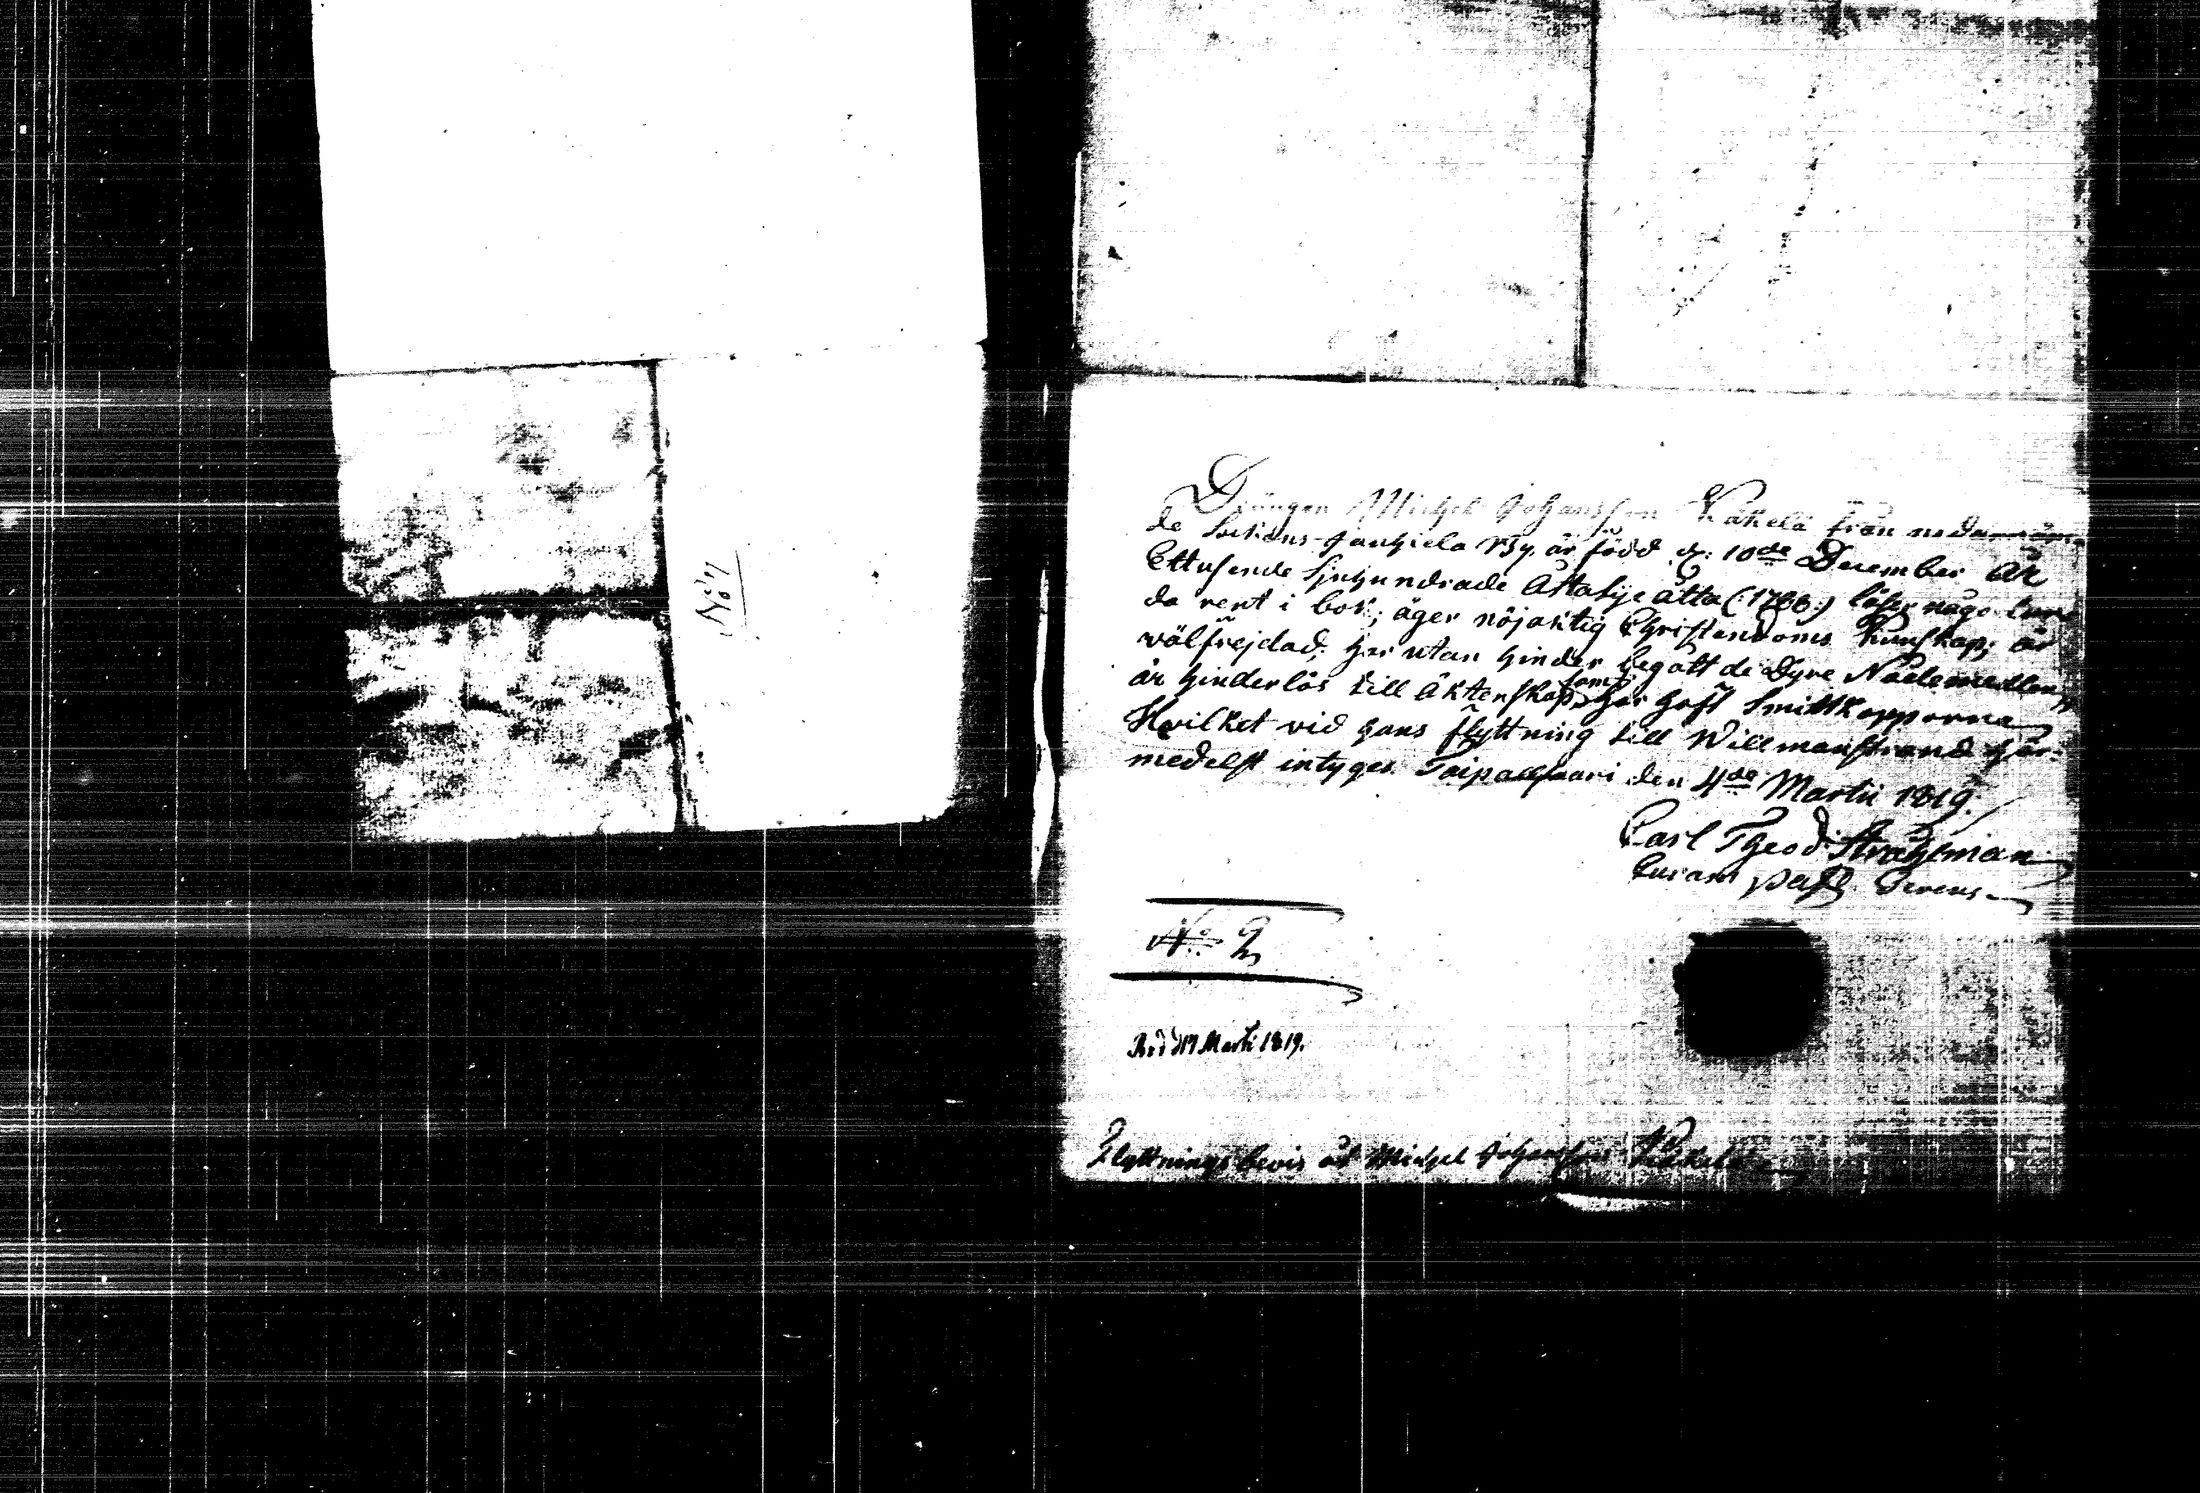 No 7
Drängen Michel Johansson Käkelä från nedannäm-
de Sockens Jauhiala By, är född d: 10de December År
Ettusende Sjuhundrade Åttatije åtta (:1788:) läser någo lun-
da rent i bok; äger nöjaktig Christendoms Kunskap; är
wälfrejdad; har utan hinder begått de Dyre Nådemedlen,
är hinderlös till Äktenskap, samt har haft Smittkopporna
Hvilket vid hans flyttning till Willmanstrand här-
medelst intyges. Taipalsaari den 4de Martii 1819.
Carl Theod: Stråhlman
Curam past. Gerens.
No 2
Bvd d 17 Marti 1819.
Flyttnings bevis åt Michel Johansson Käkelä